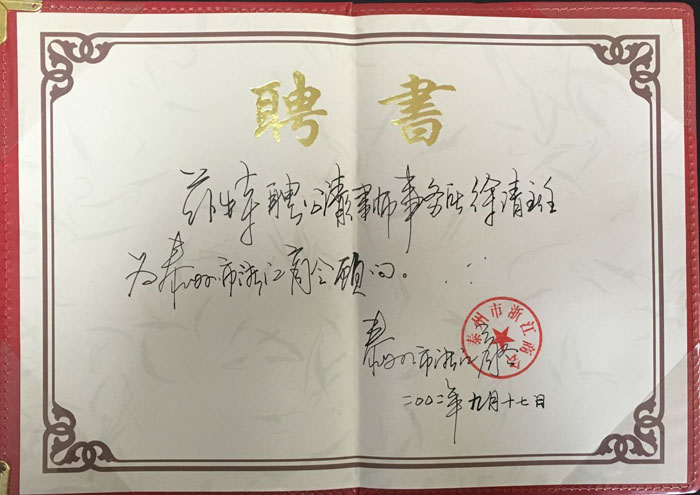 聘書
兹特聘江清律师事务所徐清主任
为泰州市浙江商会顾问。
泰州市浙江商会
二00二年九月十七日
泰州市浙江商会